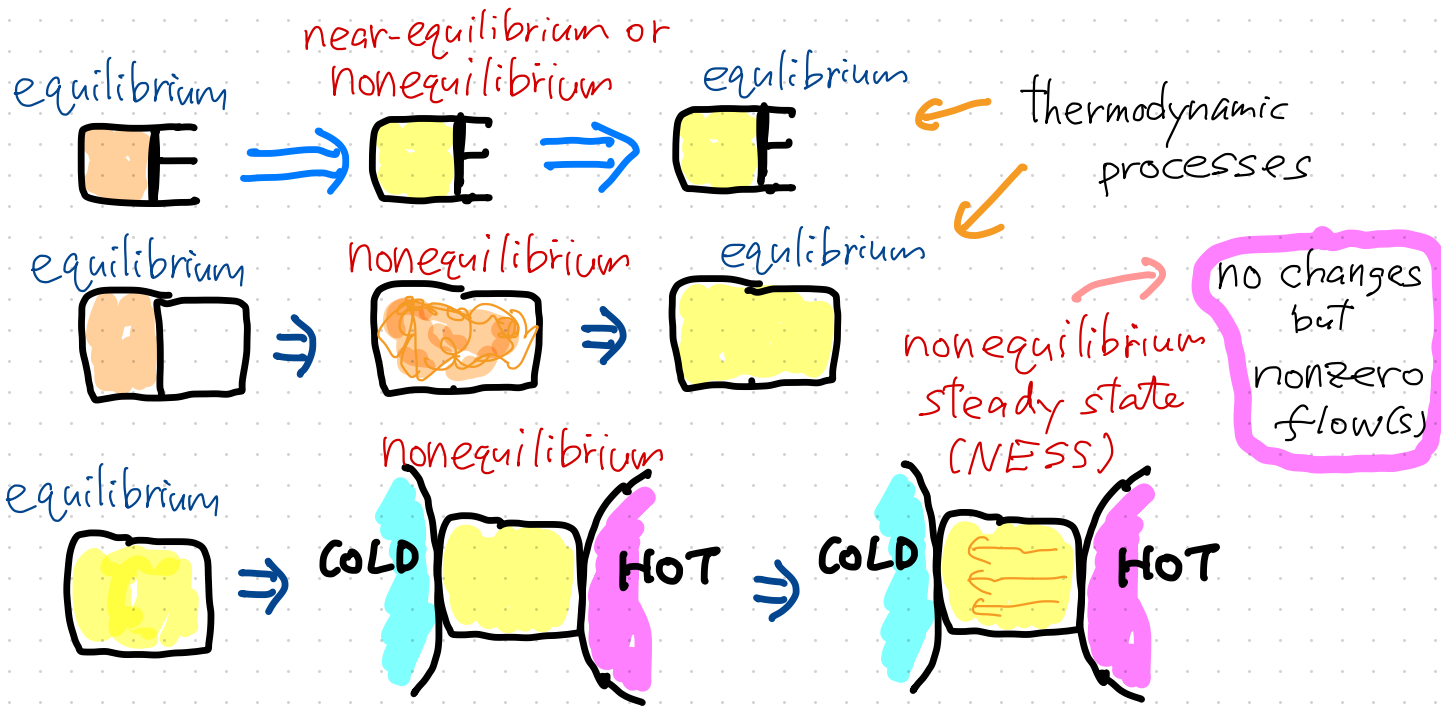 near-equilibrium or
nonequilibrium
equilibrium
equlibrium
thermodynamic
processes
equilibrium
nonequilibrium
equlibrium
no changes
but
nonzero
flow(s)
nonequilibrium
steady state
(NESS)
equilibrium
nonequilibrium
COLD
HOT
COLD
HOT